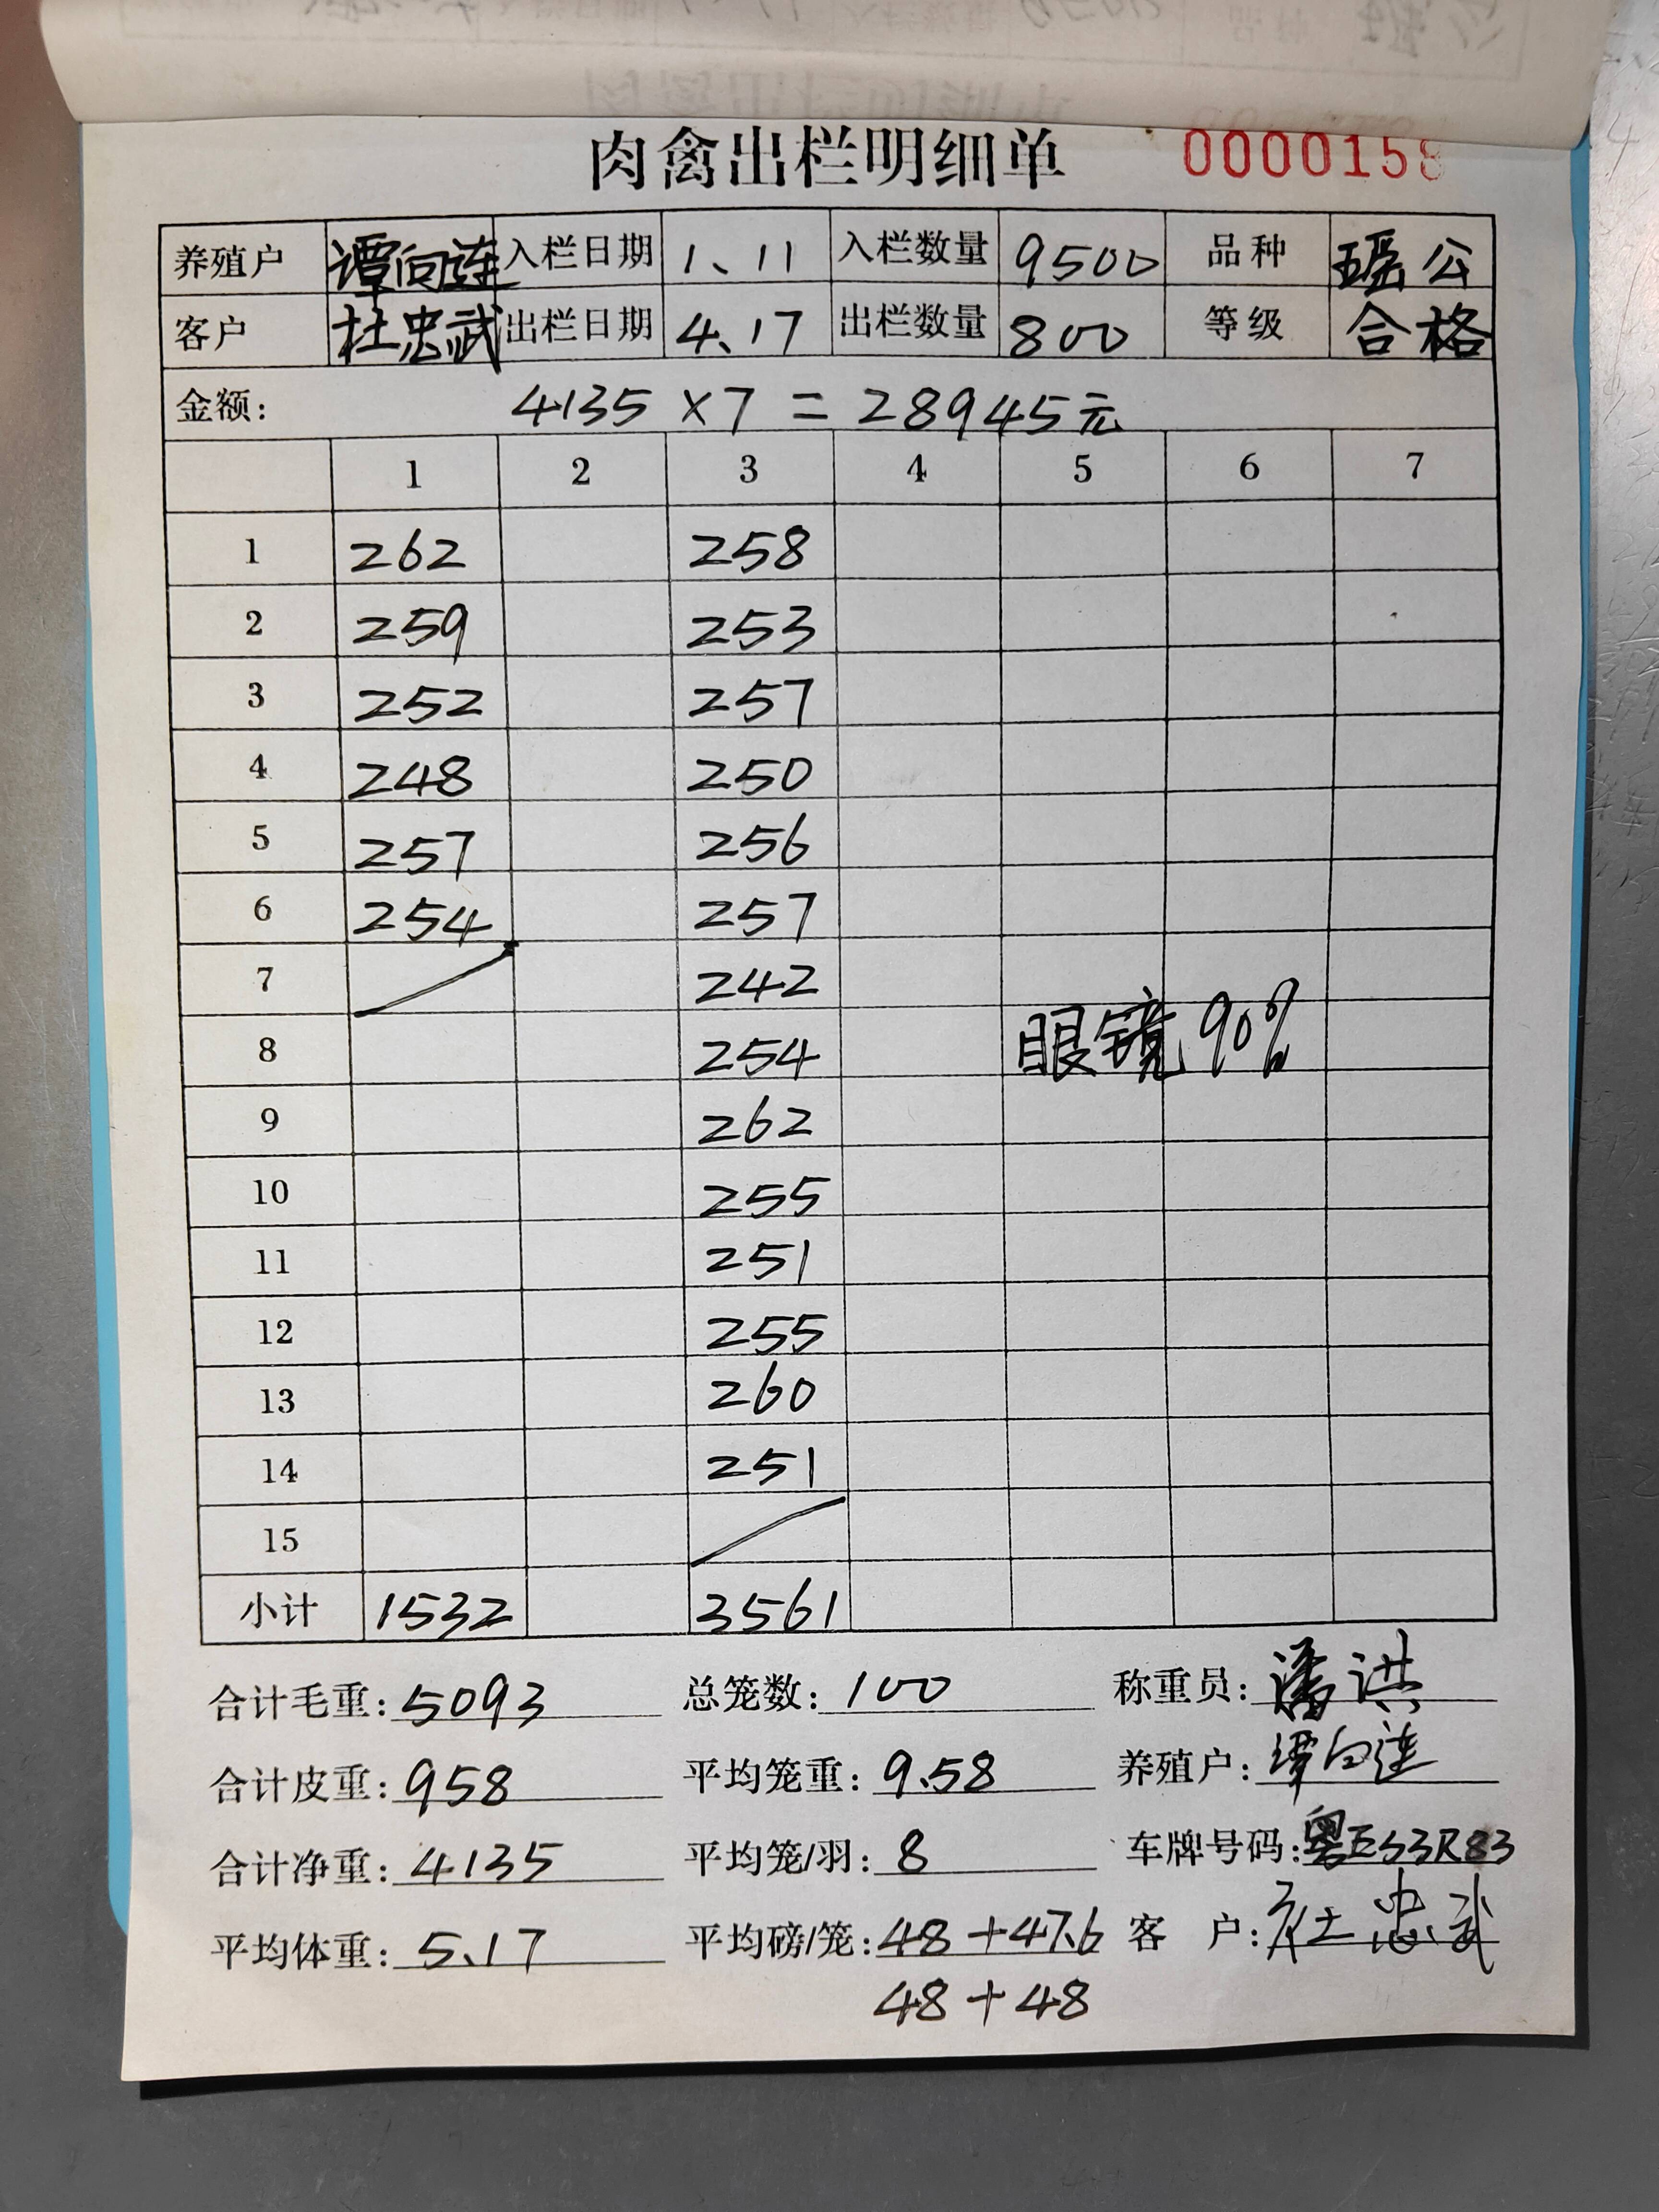 肉禽出栏明细单 0000158
养殖户 谭向连 入栏日期 1、11 入栏数量 9500 品种 瑶公
客户 杜忠武 出栏日期 4、17 出栏数量 800 等级 合格
金额: 4135 ×7 = 28945元
1 2 3 4 5 6 7
1 262 258
2 259 253
3 252 257
4 248 250
5 257 256
6 254 257
7 242
8 254 眼镜 90%
9 262
10 255
11 251
12 255
13 260
14 251
15
小计 1532 3561
合计毛重: 5093 总笼数: 100 称重员: 潘洪
合计皮重: 958 平均笼重: 9.58 养殖户: 谭向连
合计净重: 4135 平均笼/羽: 8 车牌号码: 粤E33R83
平均体重: 5.17 平均磅/笼: 48+47.6 客 户: 杜忠武
48+48